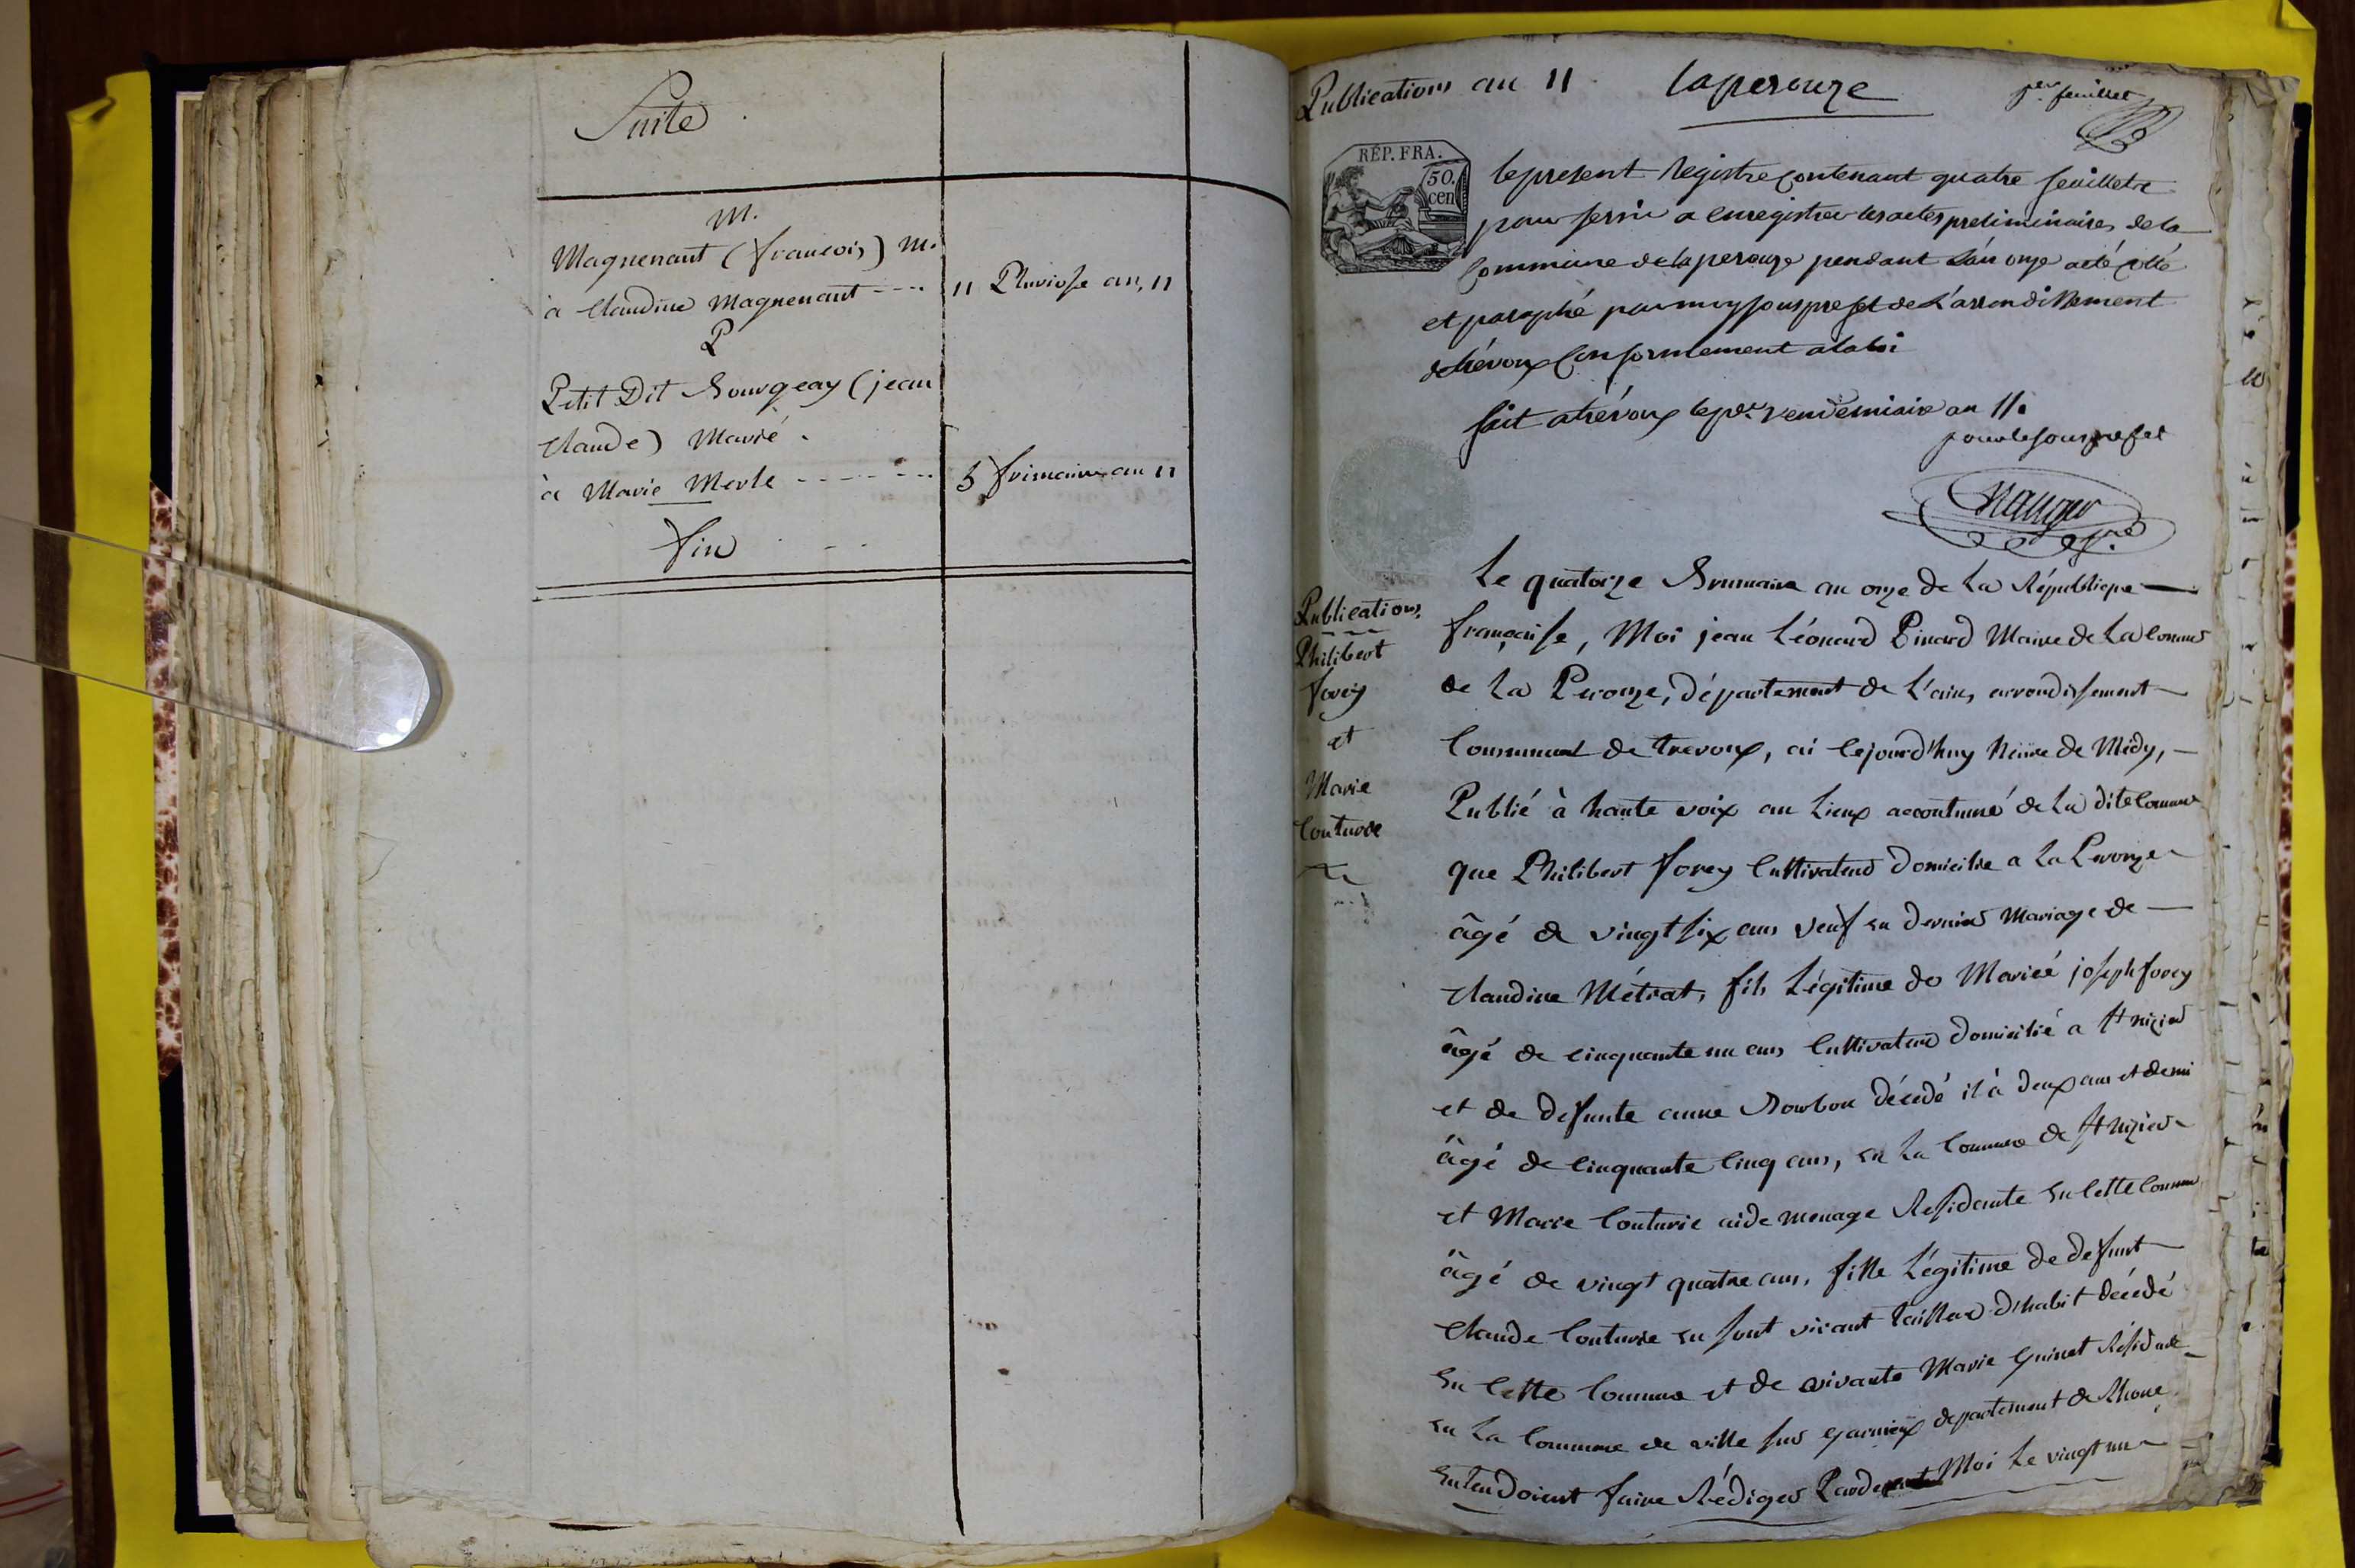 Suite
M.
Magnenant (françois) M.
à Claudine Magnenant ---- 11 Pluviose an, 11
P
Petit Dit Bourgeay (jean
Claude) Marié.
à Marie Merle ------- 5 frimaire an 11
fin
Publications an 11 laperouze per feuillet
RÉP. FRA.
50.
cen
le present Registre contenant quatre feuillets
pour servir a enregistrer les actes preliminaires de la
Commune de laperouze pendant L'an onze a été cotté
et paraphé par moy sousprefet de L'arrondissement
de trévoux Conformement a la loi
fait a trévoux le per. vendemiaire an 11.
pour le sousprefet
Le quatorze Brumaire an onze de la République
française, Moi jean Léonard Pinard Maire de La Commune
de La Perouze, département de L'ain, arrondissement
Communal de trevoux, ai cejourd'huy heure de Midy,
Publié à haute voix au Lieux accoutumé de La dite Commune
que Philibert forey Cultivateur domicilié a La Perouze
âgé de vingt six ans veuf en dernier Mariage de
Claudine Métrat, fils Légitime de Marié joseph forey
âgé de cinquante un ans Cultivateur domicilié a St nizier
et de defunte anne Bourbon décedé il à deux ans et demi
âgé de Cinquante Cinq ans, en La Commune de St nizier
et Marie Couturie aide menage Residante en Cette Commune
âgé de vingt quatre ans, fille Légitime de defunt
Claude Couturie en sont vivant tailleur d'habit décédé
en Cette Commune et de vivante Marie Guinet Résidente
en La Commune de ville sur Garnieux departement de Rhone
entendoient faire Rédiger Pardevant Moi Le vingt un
Publications
Philibert
forey
et
Marie
Couturie